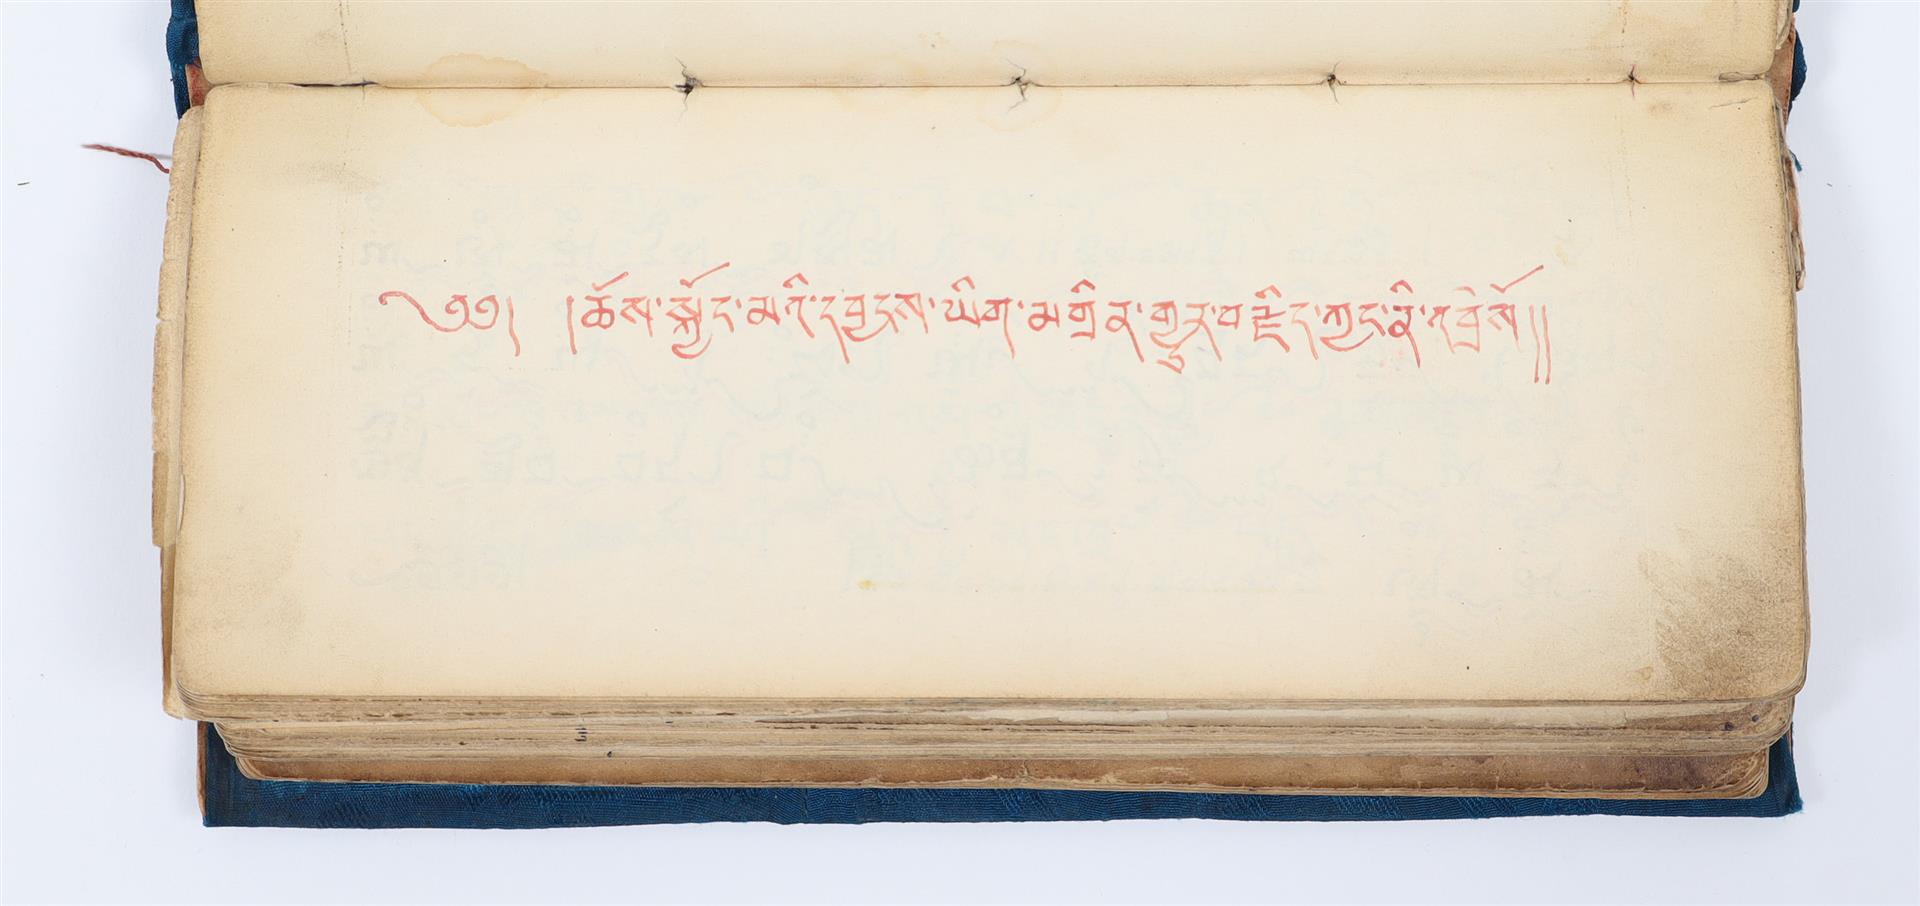 ༄༅། །ཆོས་སྐྱོང་མའི་དབྱངས་ཡིག་མགྲིན་རྒྱུན་བརྗིད་ཀྱང་ནི་འབྲིསོ༎